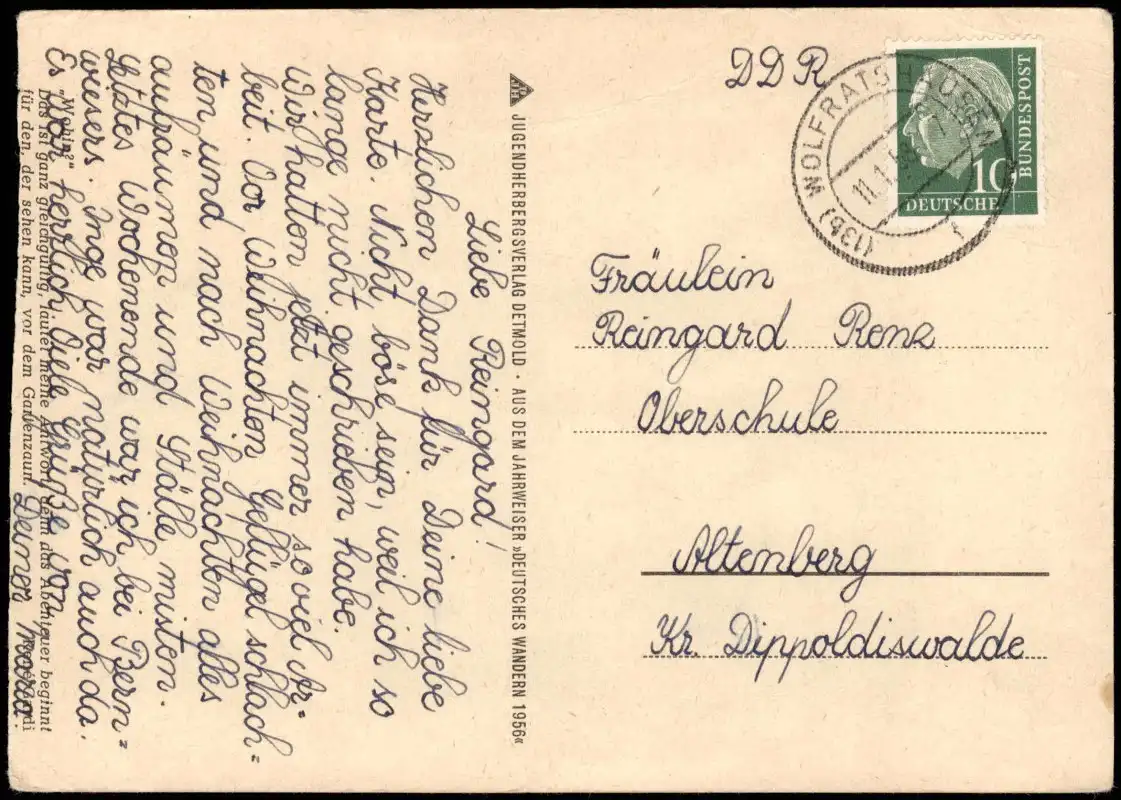 Liebe Reingard!
Herzlichen Dank für Deine liebe
Karte. Nicht böse sein, weil ich so
lange nicht geschrieben habe.
Wir hatten jetzt immer so viel Ar=
beit. Vor Weihnachten Geflügel schlach=
ten und nach Weihnachten alles
aufräumen und Ställe misten.
Letztes Wochenende war ich bei Bern=
wiesers. Inge war natürlich auch da.
Es war herrlich. Liebe Grüße von
Deiner Nora.
"Wohin?"
Das ist ganz gleichgültig, lautet meine Antwort, denn das Abenteuer beginnt
für den, der sehen kann, vor dem Gartenzaun.
JUGENDHERBERGSVERLAG DETMOLD · AUS DEM JAHRWEISER »DEUTSCHES WANDERN 1956«
DDR
(13b) WOLFRATSHAUSEN
11.1.
f
DEUTSCHE
BUNDESPOST
10
Fräulein
Reingard Renz
Oberschule
Altenberg
Kr. Dippoldiswalde